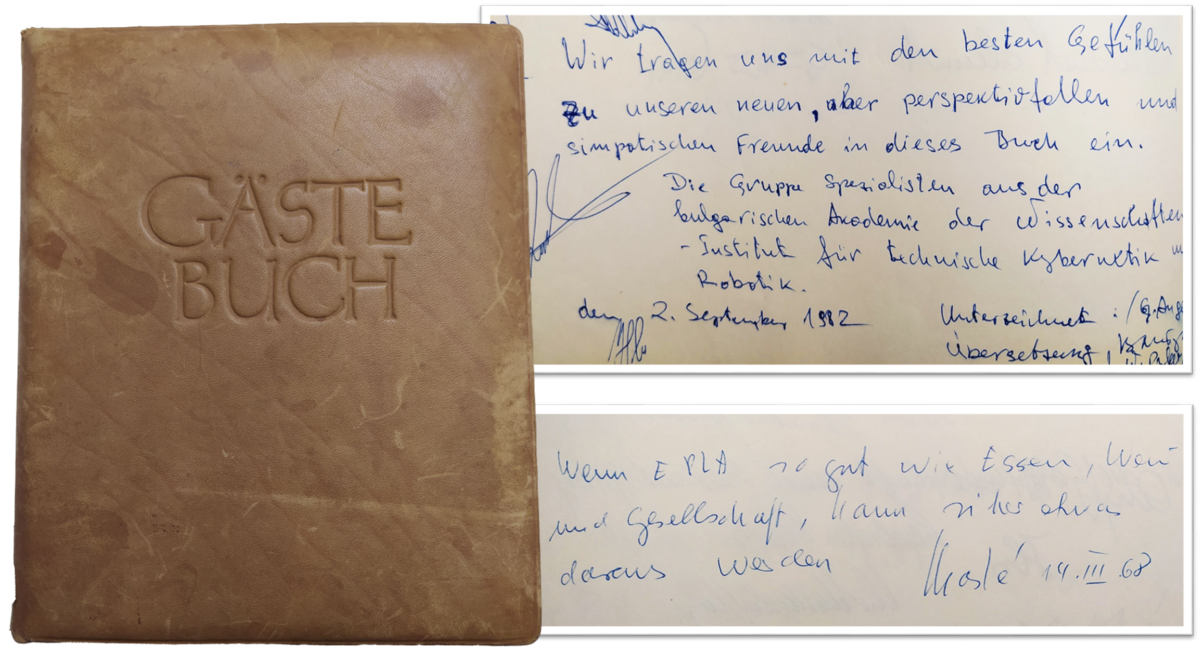 GÄSTE
BUCH
Wir tragen uns mit den besten Gefühlen
zu unseren neuen, aber perspektivfollen und
simpatischen Freunde in dieses Buch ein.
Die Gruppe Spezialisten aus der
bulgarischen Akademie der Wissenschaften
- Institut für technische Kybernetik
Robotik.
den 2. September 1982
Unterzeichnet :
Übersetzung,
Wenn EPLA so gut wie Essen, Wein
und Gesellschaft, kann sicher etwas
daraus werden 14.III.68